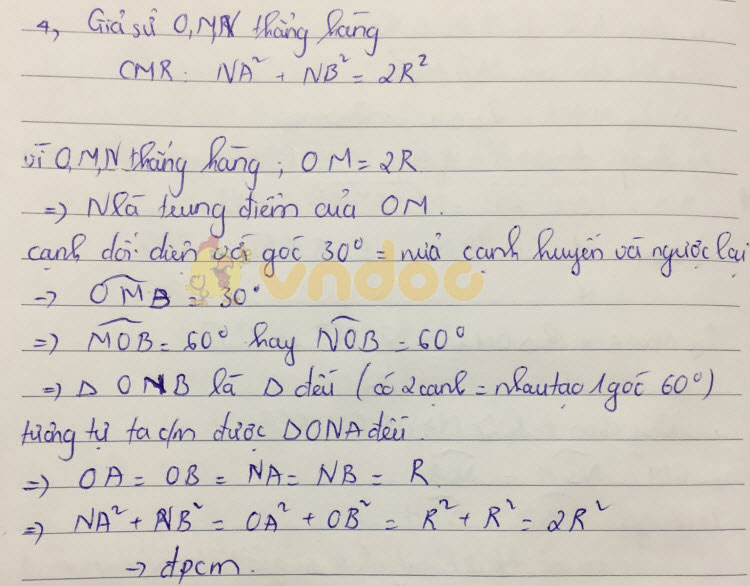 4, Giả sử O,M,N thẳng hàng
CMR: NA² + NB² = 2R²
vì O,M,N thẳng hàng; OM = 2R
=> N là trung điểm của OM.
cạnh đối diện với góc 30° = nửa cạnh huyền và ngược lại
vndoc
-> OMB = 30°
=> MOB = 60° hay NOB = 60°
=> Δ ONB là Δ đều (có 2 cạnh = nhau tạo 1 góc 60°)
tương tự ta c/m được ΔONA đều.
=> OA = OB = NA = NB = R
=> NA² + NB² = OA² + OB² = R² + R² = 2R²
-> đpcm.